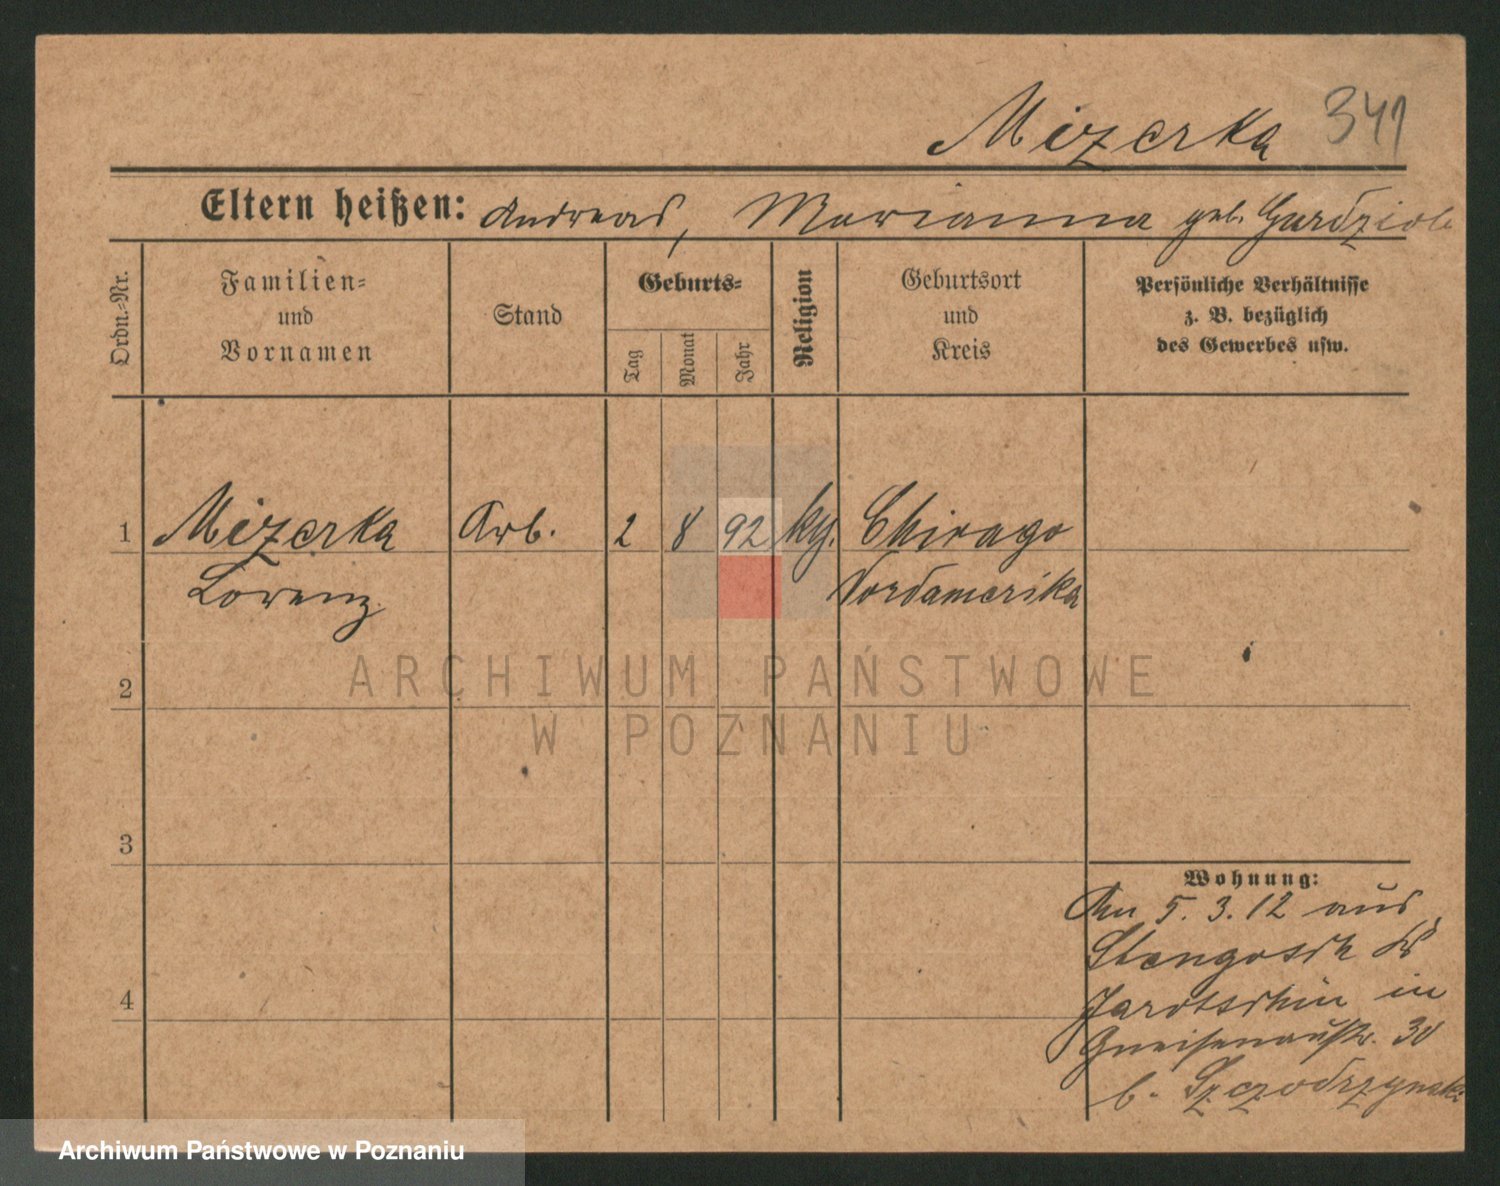 Mizerka 341
Eltern heißen: Andreas, Marianna geb. Gurdziol
Ordn.-Nr.
Familien-
und
Vornamen
Stand
Geburts-
Tag
Monat
Jahr
Religion
Geburtsort
und
Kreis
Persönliche Verhältnisse
z. B. bezüglich
des Gewerbes usw.
1 Mizerka Arb. 2 8 92 Chicago
Lorenz Nordamerika
ARCHIWUM PAŃSTWOWE
W POZNANIU
2
3
4
Wohnung:
5. 3. 12 aus
Jarotschin in
Gneisenaustr. 30
b. Szczodrzynski
Archiwum Państwowe w Poznaniu